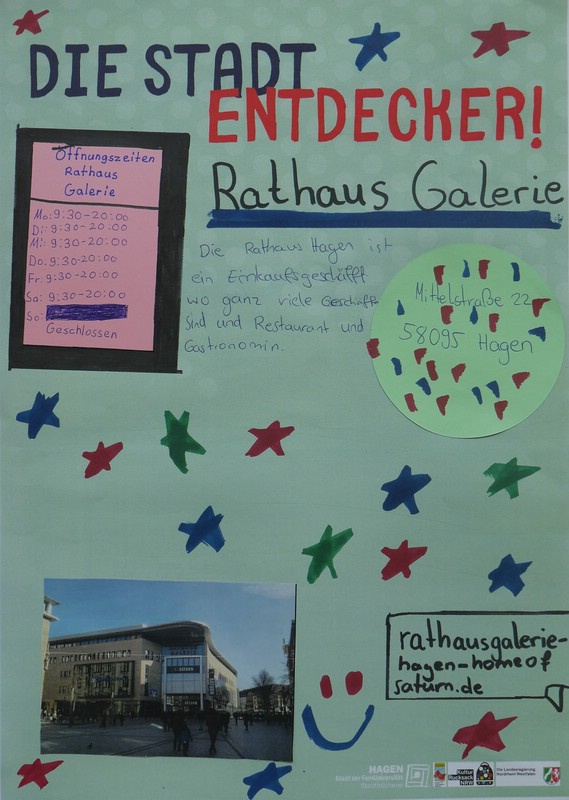 DIE STADT
ENTDECKER!
Rathaus Galerie
Öffnungszeiten
Rathaus
Galerie
Mo: 9:30-20:00
Di: 9:30-20:00
Mi: 9:30-20:00
Do: 9:30-20:00
Fr: 9:30-20:00
Sa: 9:30-20:00
So:
Geschlossen
Die Rathaus Hagen ist
ein Einkaufsgeschäfft
wo ganz viele Geschäft
Sind und Restaurant und
Gastronomin.
Mittelstraße 22
58095 Hagen
rathausgalerie-
hagen-homeof
saturn.de
HAGEN
Stadt der FernUniversität
Stadtbücherei
Kultur
Rucksack
NRW
Die Landesregierung
Nordrhein-Westfalen